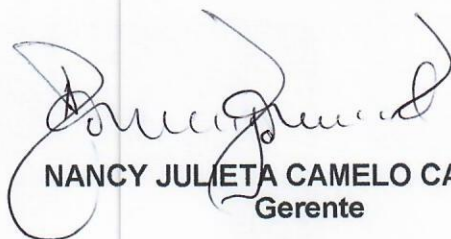 NANCY JULIETA CAMELO CA
Gerente